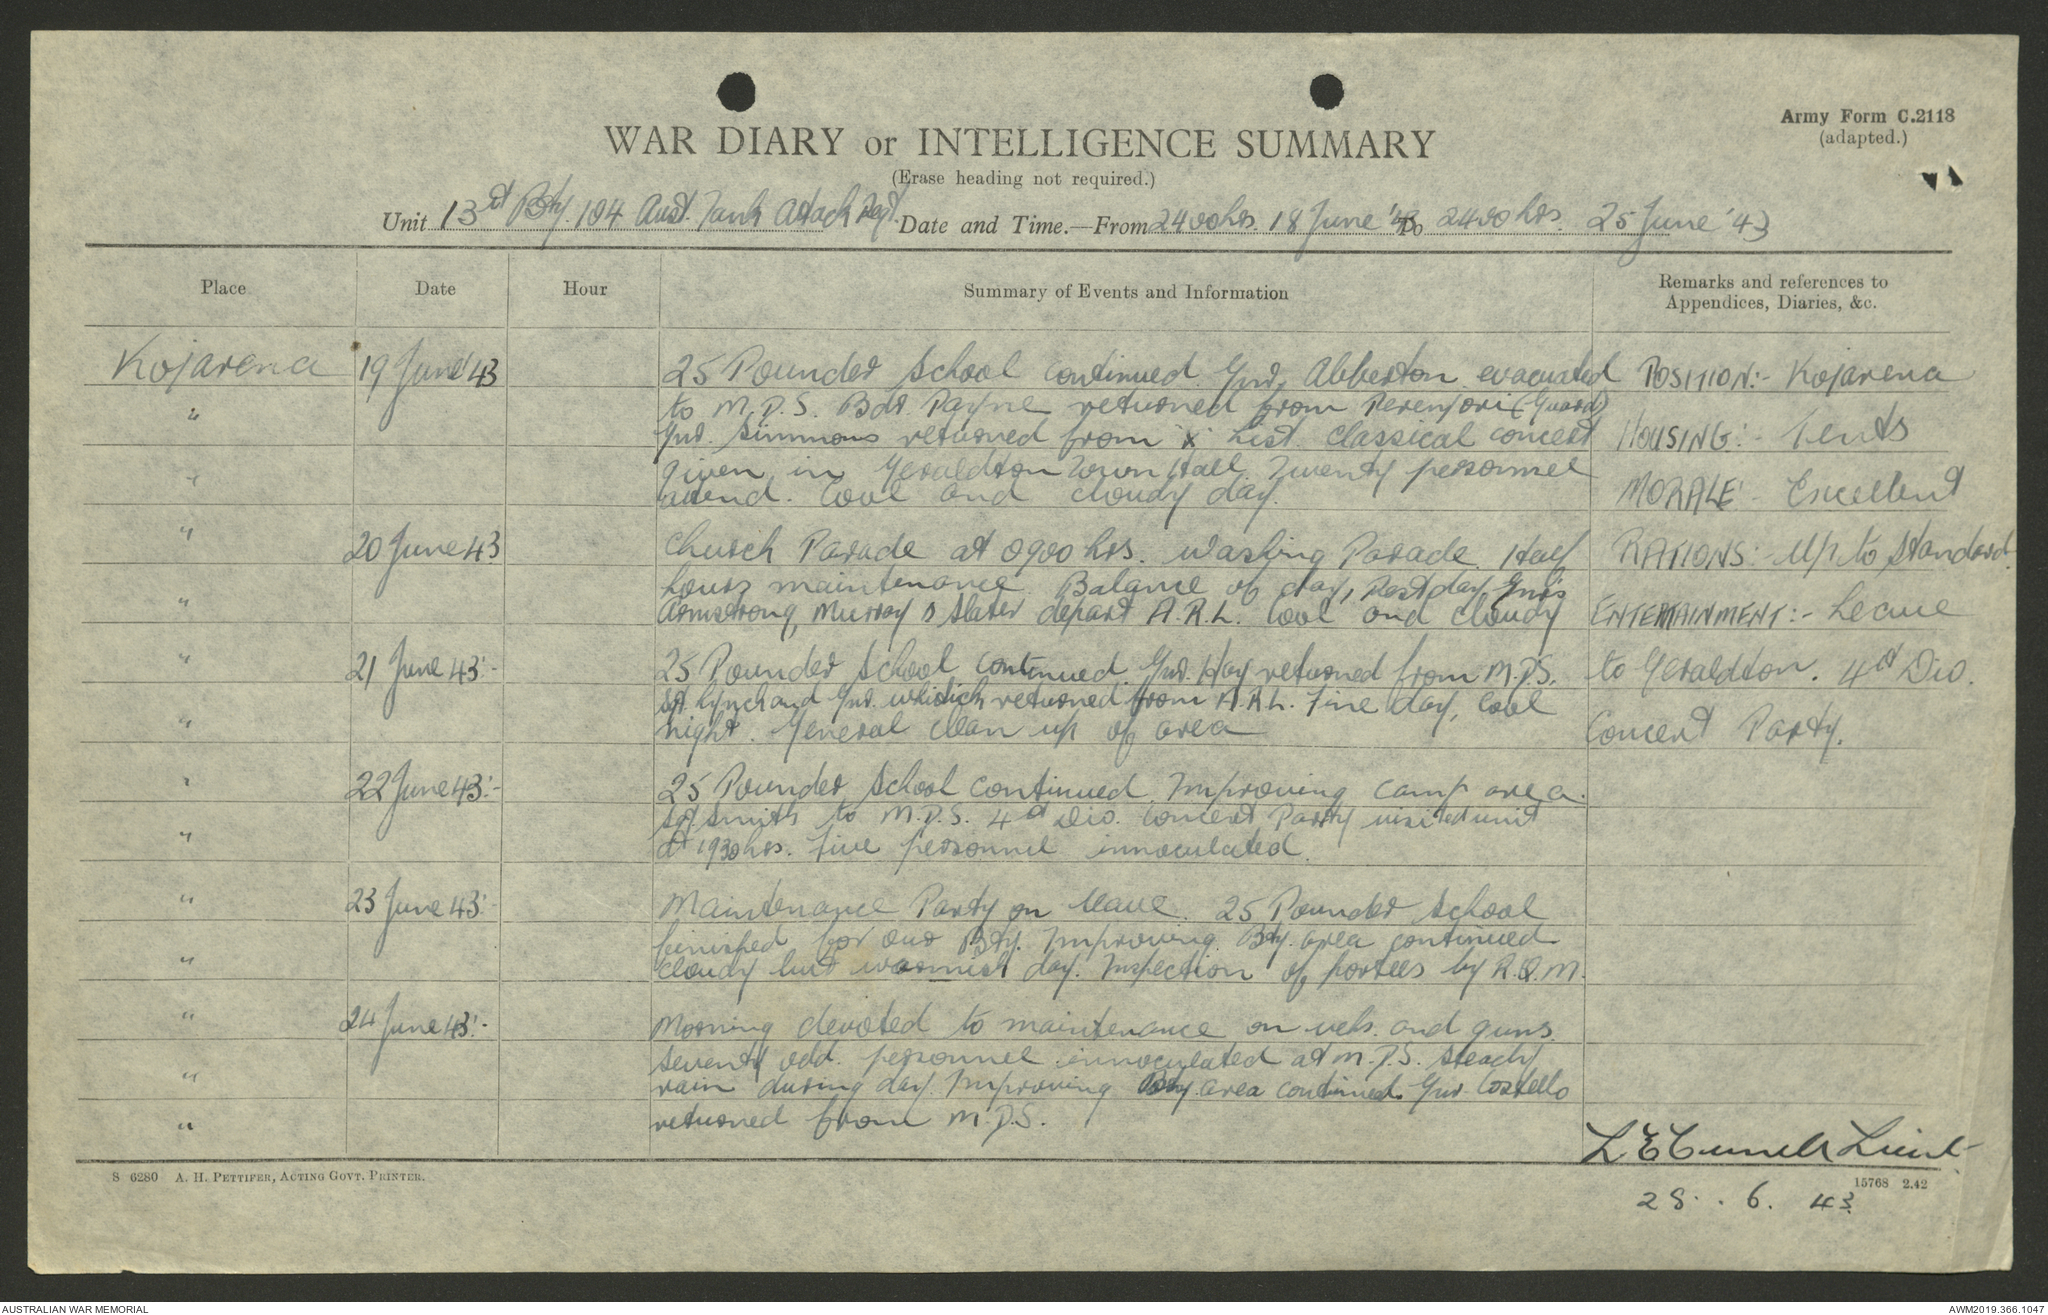 Army Form C.2118
(adapted.)
WAR DIARY or INTELLIGENCE SUMMARY
(Erase heading not required.)
Unit 13th Bty. 104 Aust. Tank Attack Regt. Date and Time.—From 2400 hrs. 18 June '43 To 2400 hrs. 25 June '43
Place Date Hour Summary of Events and Information Remarks and references to
Appendices, Diaries, &c.
Kojarena 19 June 43 25 Pounder School continued. Gnr. Abberton evacuated
" to M.D.S. Bdr. Payne returned from Perenjori (Guard)
Gnr. Simmons returned from 'X' List. Classical concert
" given in Geraldton Town Hall. Twenty personnel
attend. Cool and cloudy day.
" 20 June 43 Church Parade at 0900 hrs. Washing Parade. Half
hours maintenance. Balance of day, Rest day. Gnr's
" Armstrong, Murray & Slater depart A.R.L. Cool and cloudy
" 21 June 43:- 25 Pounder School continued. Gnr. Hay returned from M.D.S.
Sgt. Lynch and Gnr. returned from A.R.L. Fine day, cool
" night. General clean up of area
" 22 June 43:- 25 Pounder School continued. Improving camp area.
Sgt. Smith to M.D.S. 4th Div. Concert Party visited unit
" at 1930 hrs. Five personnel innoculated.
" 23 June 43:- Maintenance Party on leave. 25 Pounder School
finished for our Bty. Improving Bty. area continued
" cloudy but warmish day. Inspection of portees by R.Q.M.
" 24 June 43:- Morning devoted to maintenance on vehs. and guns.
Seventy odd personnel innoculated at M.D.S. Steady
" rain during day. Improving Bty. area continued. Gnr Costello
" returned from M.D.S.
POSITION:- Kojarena
HOUSING:- Tents
MORALE:- Excellent
RATIONS:- Up to Standard.
ENTERTAINMENT:- Leave
to Geraldton. 4th Div.
Concert Party.
L E Lieut
28. 6. 43
S 6280 A. H. PETTIFER, ACTING GOVT. PRINTER.
15768 2.42
AUSTRALIAN WAR MEMORIAL
AWM2019.366.1047